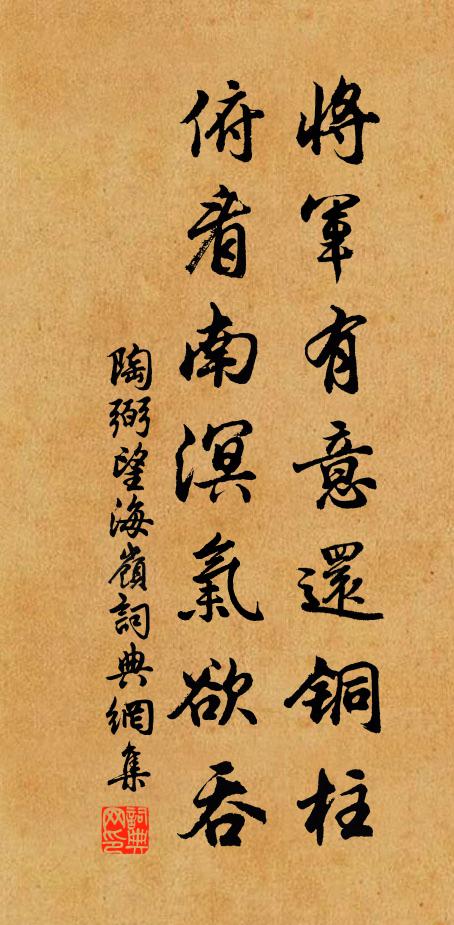 將軍有意還铜柱
俯看南溟氣欲吞
陶弼望海嶺詞典網集
詞典网印